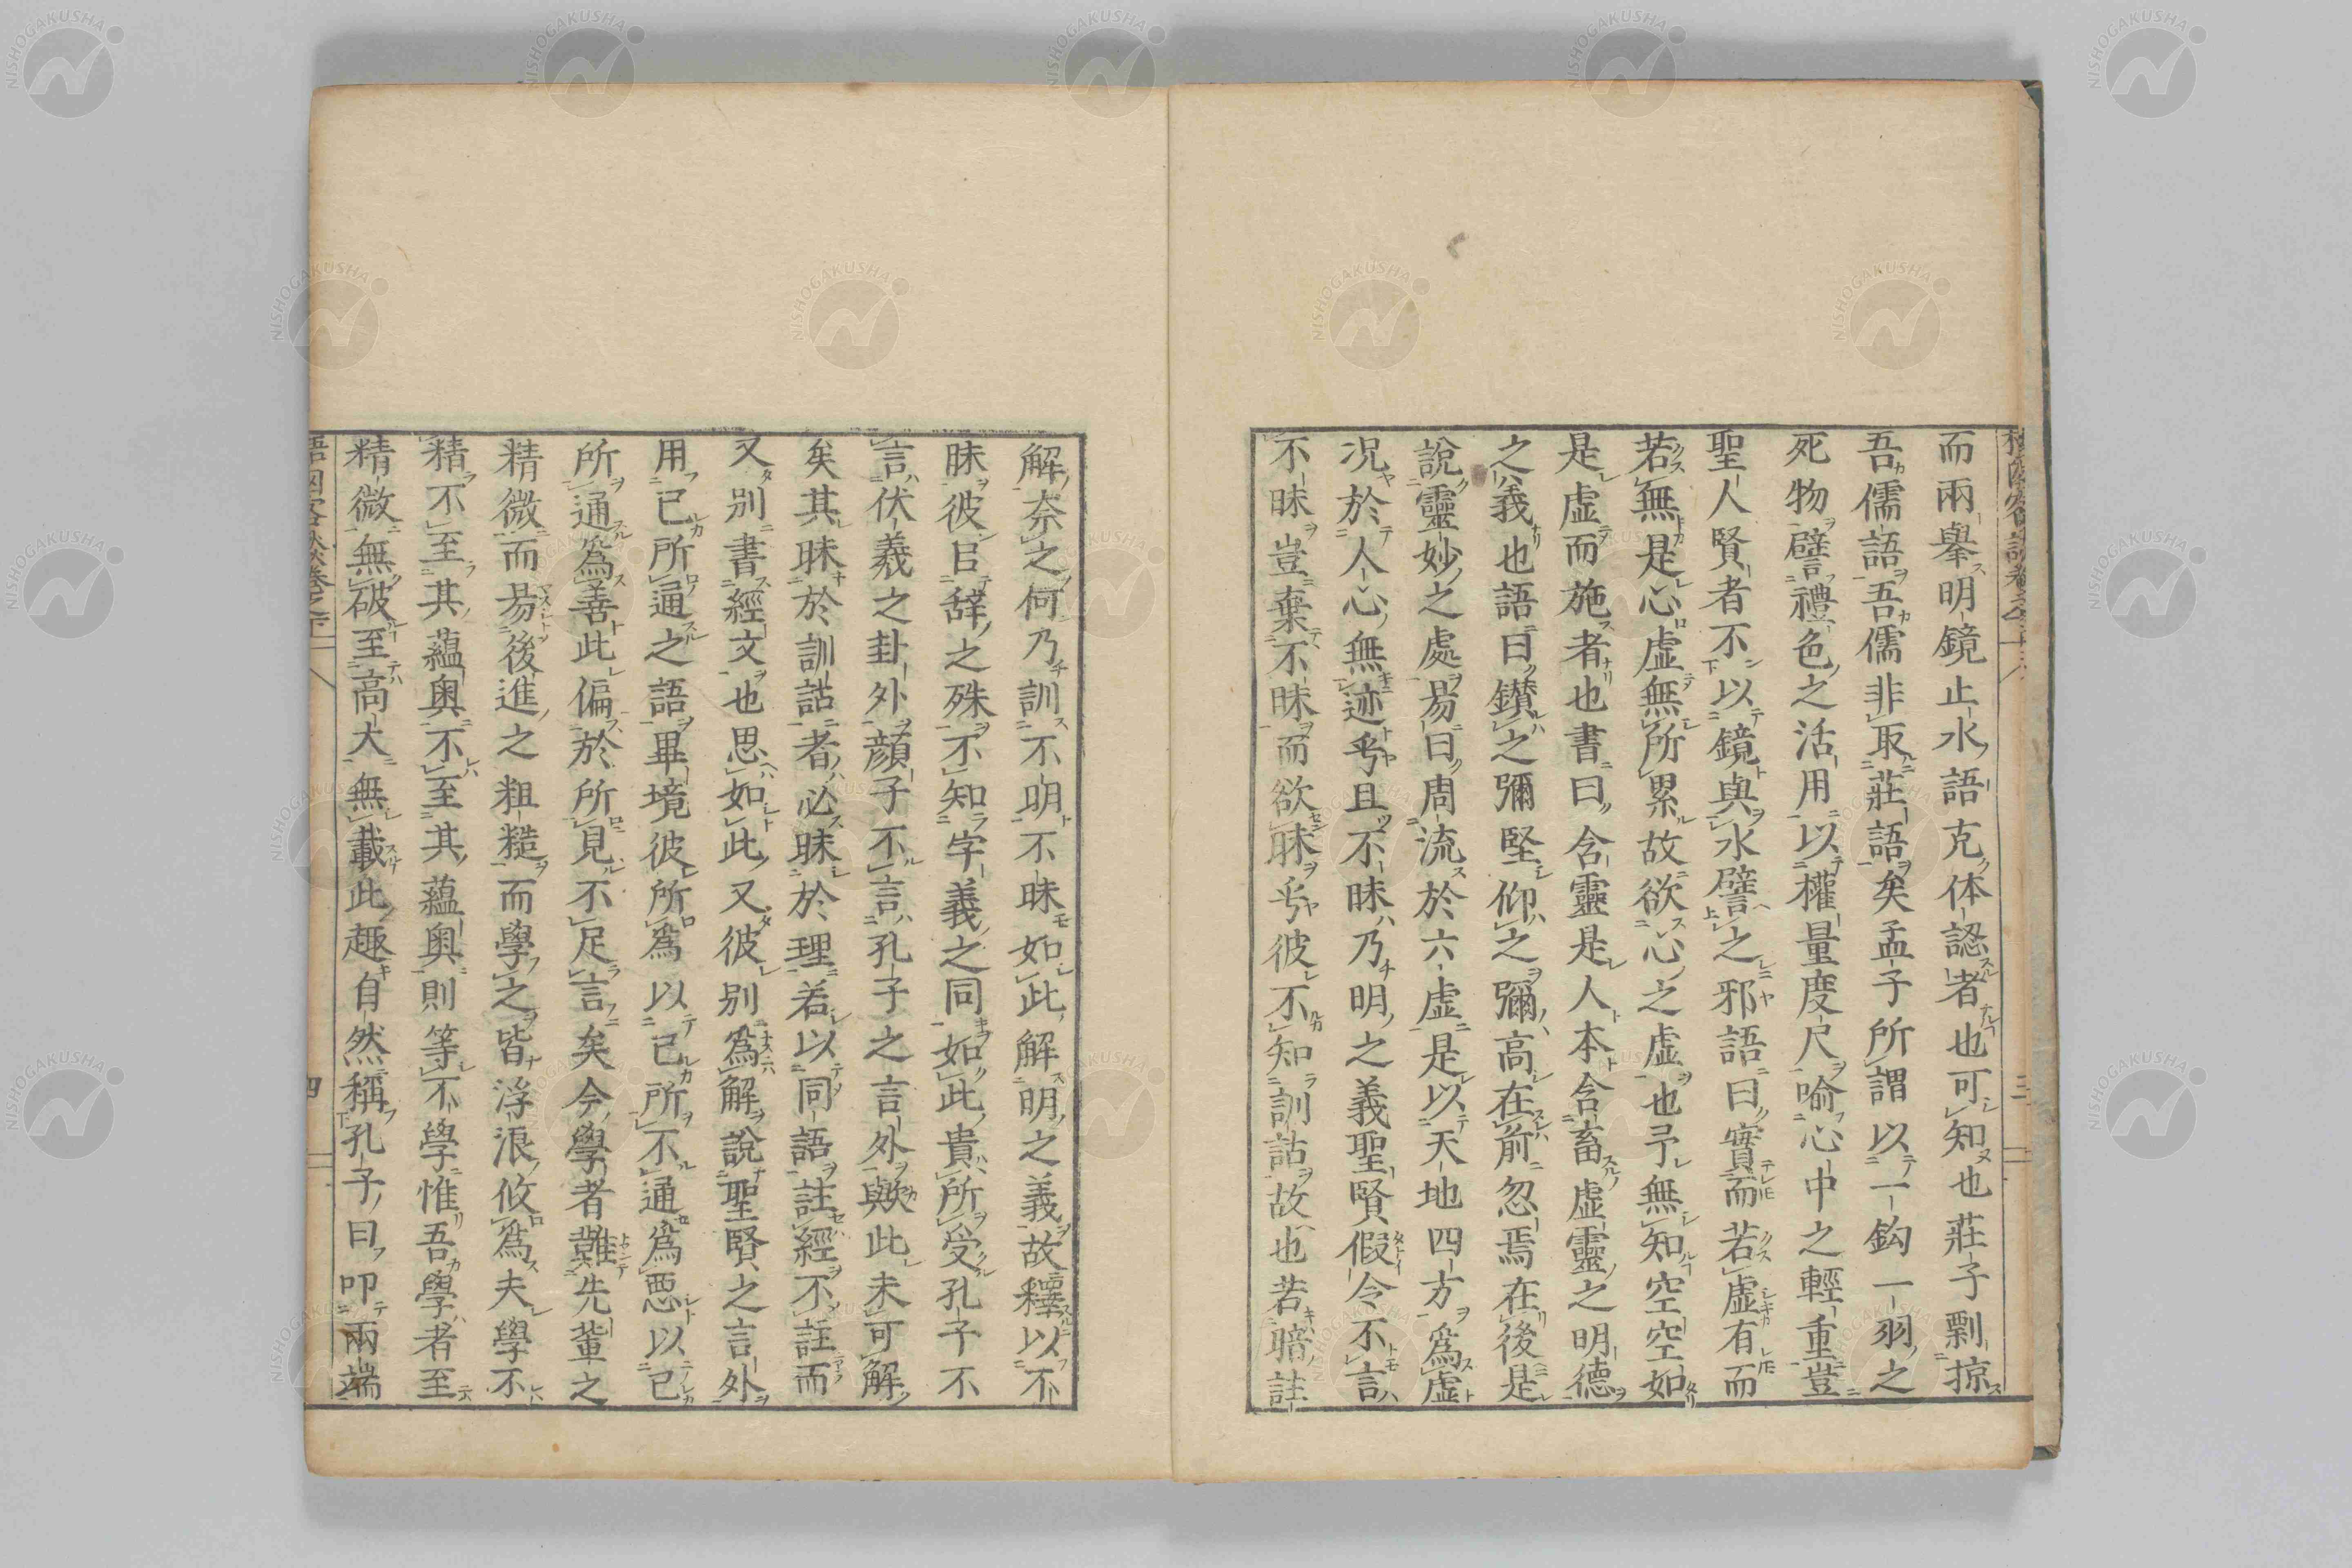 而兩舉明鏡止水語克体認者也可知也莊子剽掠
吾儒語吾儒非取莊語矣孟子所謂以一鈎一羽之
死物譬禮色之活用以權量度尺喻心中之輕重豈
聖人賢者不以鏡與水譬之邪語曰實而若虛有而
若無是心虛無所累故欲心之虛也予無知空空如
是虛而施者也書曰含靈是人本含畜虛靈之明德
之義也語曰鑽之彌堅仰之彌高在前忽焉在後是
說靈妙之處易曰周流於六虛是以天地四方爲虛
况於人心無迹乎且不昧乃明之義聖賢假令不言
不昧豈棄不昧而欲昧乎彼不知訓詁故也若暗註
解奈之何乃訓不明不昧如此解明之義故釋以不
昧彼巨辭之殊不知字義之同如此貴所受孔子不
言伏羲之卦外顏子不言孔子之言外歟此未可解
矣其昧於訓詁者必昧於理若以同語註經不註而
又別書經文也思如此又彼別爲解說聖賢之言外
用已所通之語畢境彼所爲以已所不通爲惡以已
所通爲善此偏於所見不足言矣今學者難先輩之
精微而易後進之粗糙而學之皆浮浪攸爲夫學不
精不至其蘊奧不至其蘊奧則等不學惟吾學者至
精微無破至高大無載此趣自然稱孔子曰叩兩端
NISHOGAKUSHA